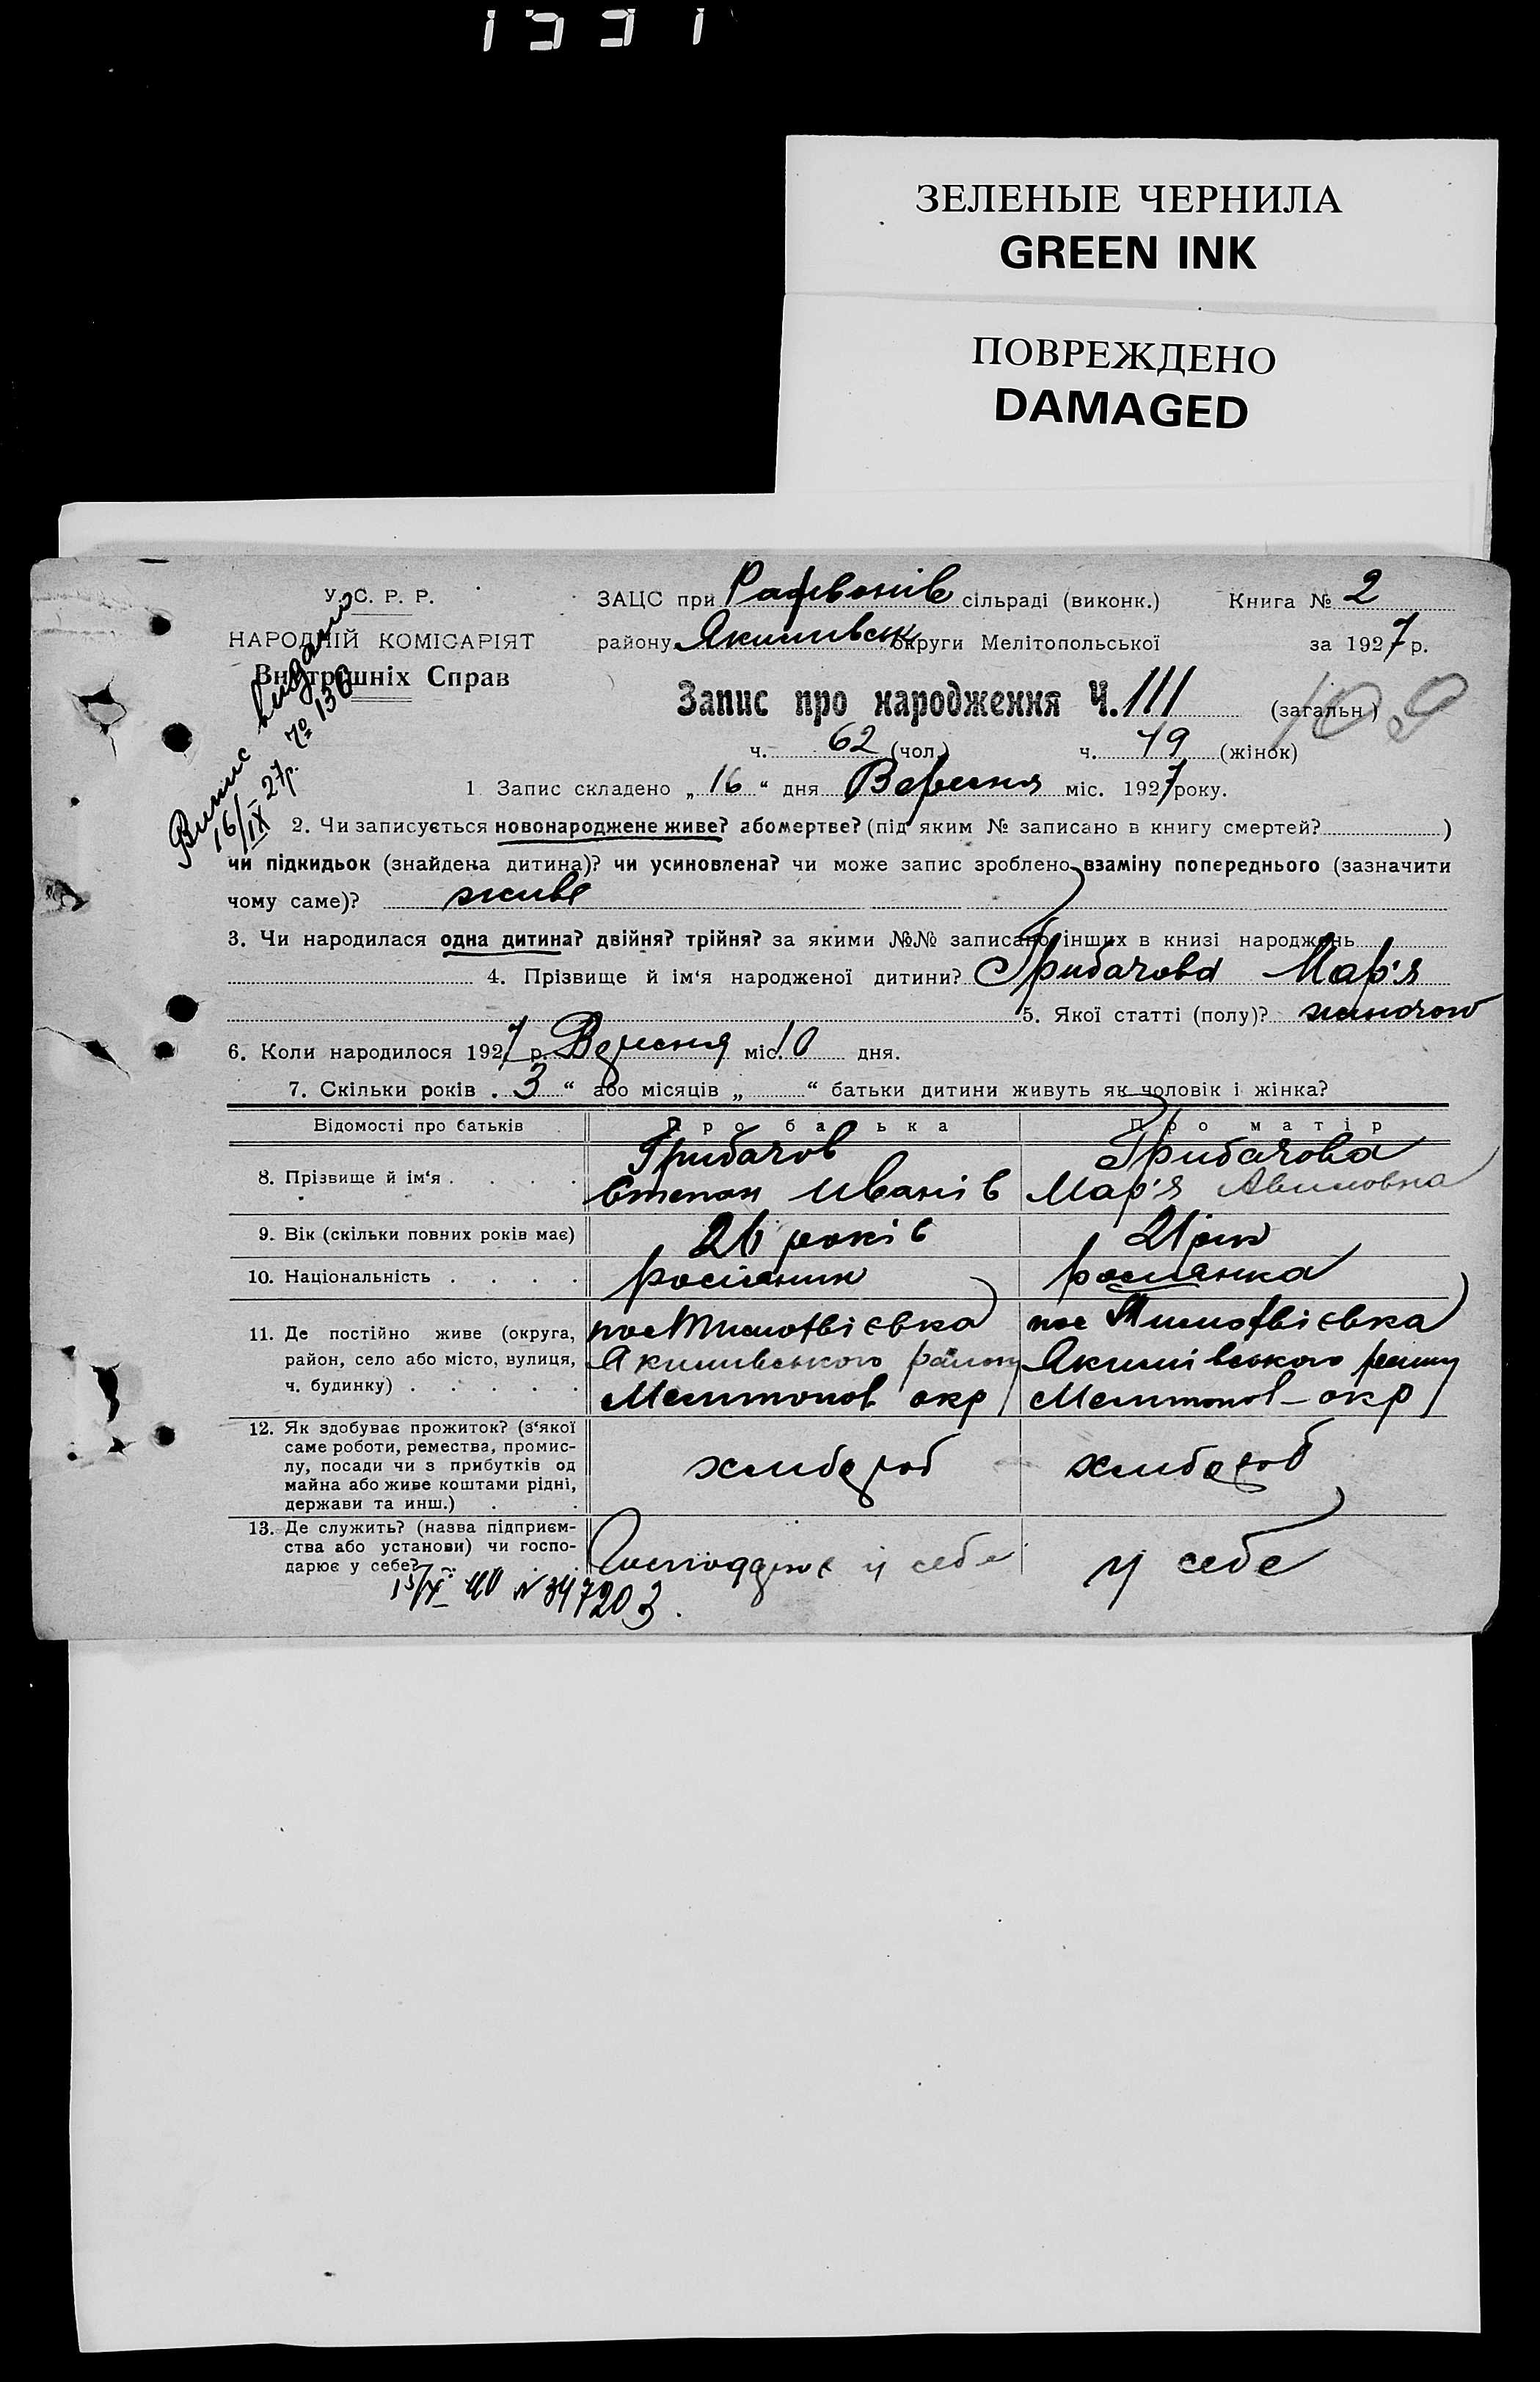 ЗЕЛЕНЫЕ ЧЕРНИЛА
GREEN INK
ПОВРЕЖДЕНО
DAMAGED
У. С. Р. Р.
НАРОДНІЙ КОМІСАРІЯТ
Внутрішніх Справ
Випис видано
16/IX 27р. № 136
ЗАЦС при сільраді (виконк.) Книга № 2
району Якимівськ округи Мелітопольської за 1927 р.
Запис про народження Ч. 111 (загальн)
ч. 62 (чол.) ч. 49 (жінок)
1 Запис складено „ 16 “ дня Вересня міс. 1927 року.
2. Чи записується новонароджене живе? або мертве? (під яким № записано в книгу смертей? )
чи підкидьок (знайдена дитина)? чи усиновлена? чи може запис зроблено взаміну попереднього (зазначити
чому саме)? живе
3. Чи народилася одна дитина? двійня? трійня? за якими №№ записано інших в книзі народжень
4. Прізвище й ім‘я народженої дитини? Грибачова Мар'я
5. Якої статті (полу)? жіночою
6. Коли народилося 1927 р. Вересня міс. 10 дня.
7. Скільки років „ 3 “ або місяців „ “ батьки дитини живуть як чоловік і жінка?
Відомості про батьків Про батька Про матір
8. Прізвище й ім‘я . . . . Грибачов Грибачова
Степан Иванів Мар'я
9. Вік (скільки повних років має) 26 років 21 рік
10. Національність . . . . росіянин росіянка
11. Де постійно живе (округа, пос Тимофвієвка пос Тимофвієвка
район, село або місто, вулиця, Якимівського району Якимівського району
ч. будинку) . . . . . Мелитопол окр Мелитопол - окр
12. Як здобуває прожиток? (з‘якої
саме роботи, ремества, промис-
лу, посади чи з прибутків од хлибороб хлибороб
майна або живе коштами рідні,
держави та инш.) . .
13. Де служить? (назва підприєм-
ства або установи) чи госпо- Господарює у себе у себе
дарює у себе?
40 N 347203.